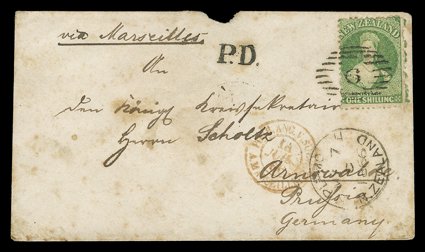 via Marseilles.
P.D.
NEW ZEALAND
ONE SHILLING
An
den Königl Kreissekretair
Herrn Scholtz
Arnswalde
Prussia
Germany.